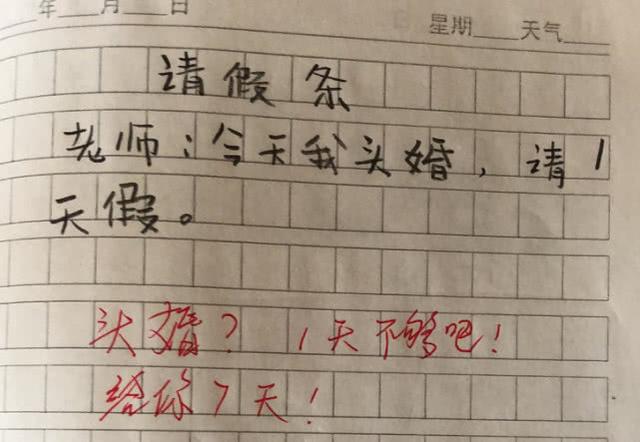 年 月 日 星期 天气
请假条
老师:今天我头婚,请1
天假。
头婚?1天不够吧!
给你7天!